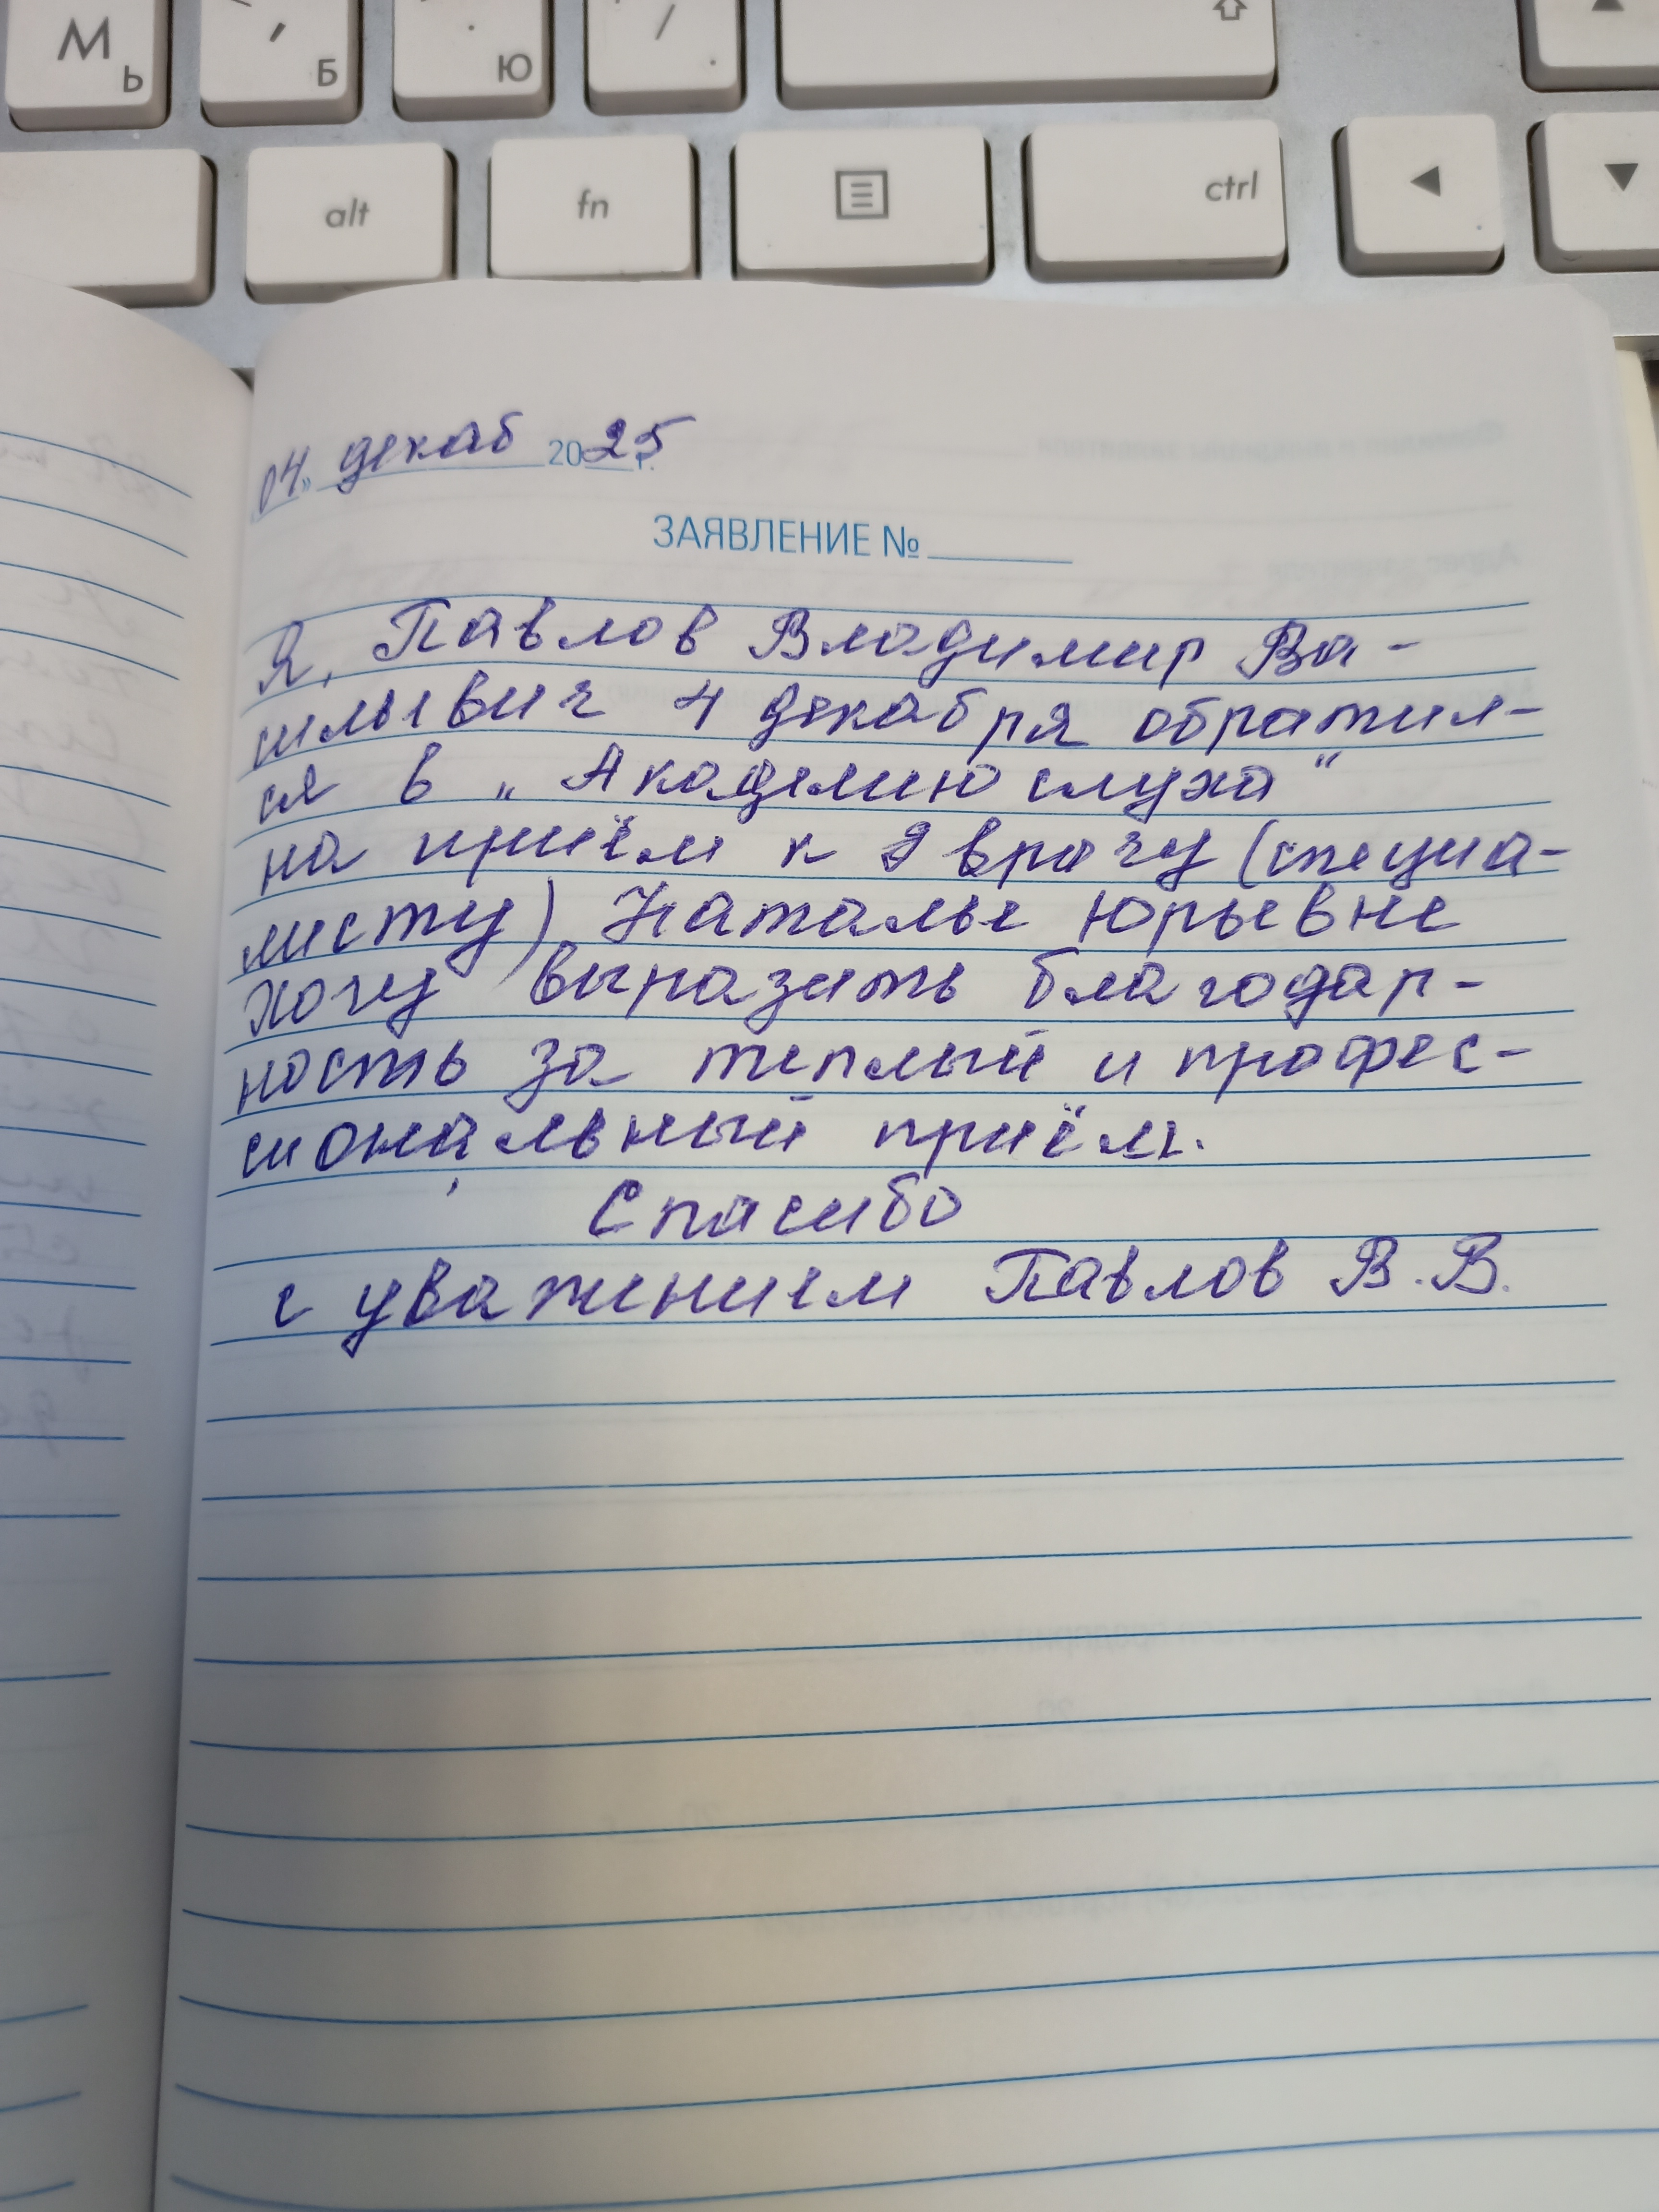 М Ь
Б
Ю
/ .
alt fn ctrl
04" декаб 2025 г.
ЗАЯВЛЕНИЕ №
Я, Павлов Владимир Ва-
сильевич 4 декабря обратил-
ся в „Академию слуха"
на приём к врачу (специа-
листу) Наталье Юрьевне
Хочу выразить благодар-
ность за теплый и професс-
иональный приём.
Спасибо
с уважением Павлов В.В.